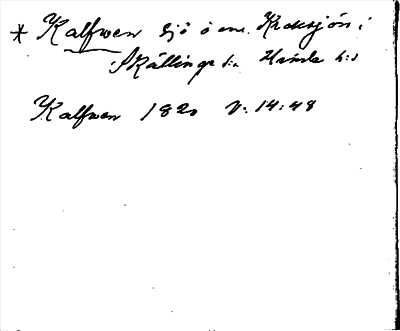 * Kalfwen sjö ö om. Kroksjön i
Skällinge s:n Himle h:d
Kalfwen 1820 V: 14:48